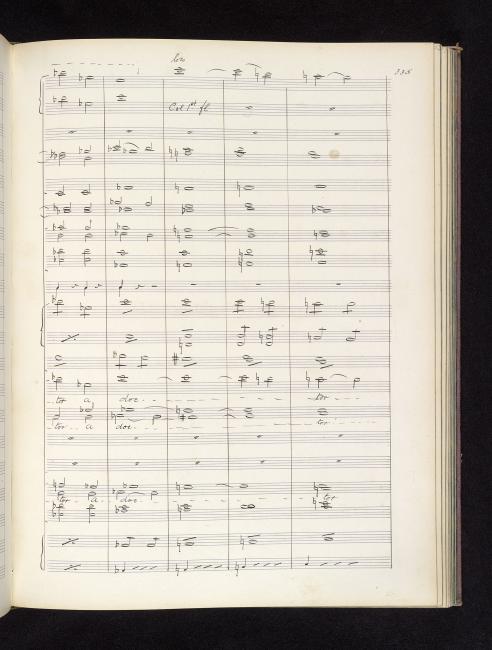 loco
335
Col 1st fl
tor a dor
tor
tor a dor
tor
tor a dor
tor